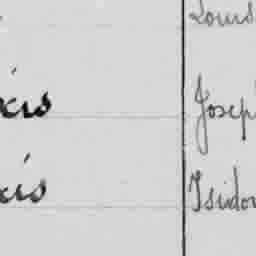 Louis
xis Joseph
xis Isidor